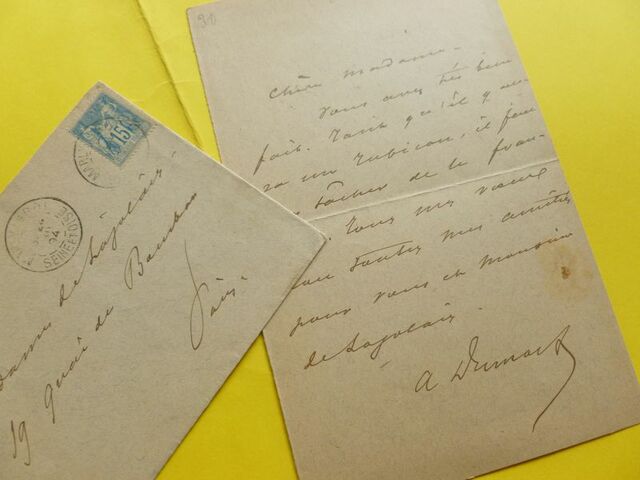 30
Chère madame.
vous avez très bien
fait. Tant qu'il y au-
ra un Rubicon, il fau
tâcher de le fran-
Tous mes vœux
toutes mes amitiés
pour vous et monsieur
de
A Dumas f
15
SEINE-ET-OISE
94
de
19 quai de Bourbon
Paris.